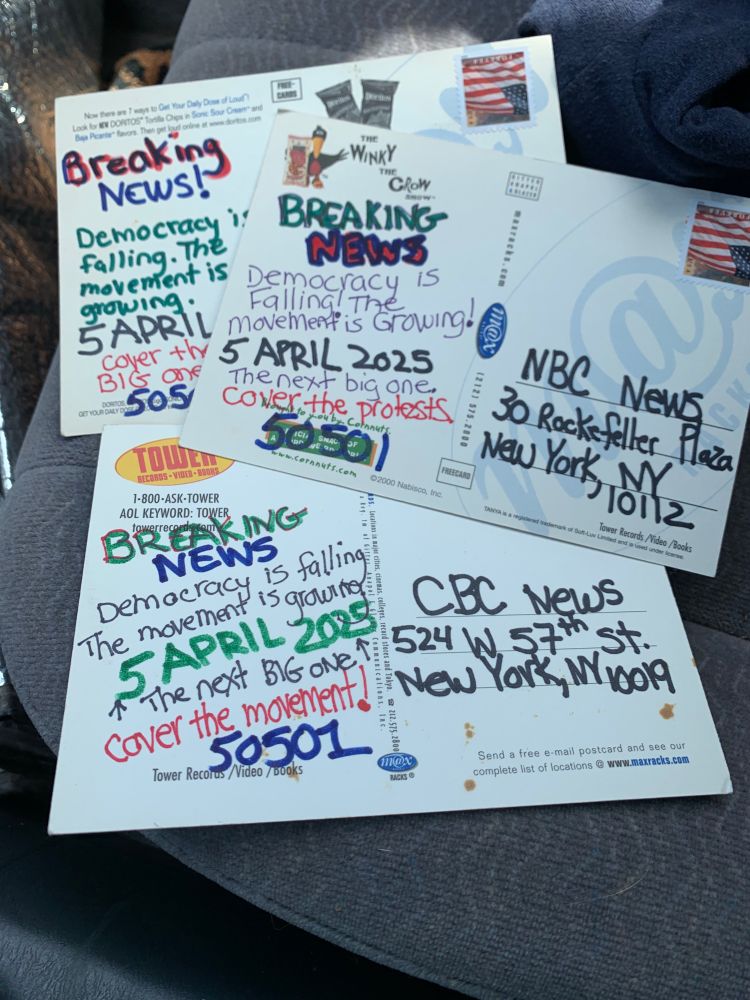 Now there are 7 ways to Get Your Daily Dose of Loud!
Look for NEW DORITOS Tortilla Chips in Sonic Sour Cream™ and
Baja Picante™ flavors. Then get loud online at www.doritos.com
FREE-
CARDS
Breaking
NEWS!
Democracy is
falling. The
movement is
growing.
5 APRIL
cover th
BIG one
DORITOS,
GET YOUR DAILY DOS
505
THE
WINKY
THE
CROW
SHOW™
BREAKING
NEWS
Democracy is
Falling! The
movement is Growing!
5 APRIL 2025
The next big one.
Cover the protests.
Brought to you by Cornnuts.
50501
www.cornnuts.com
©2000 Nabisco, Inc.
maxracks.com
m@x
(212) 575-2800
FREECARD
NBC News
30 Rockefeller Plaza
New York, NY
10112
TANYA is a registered trademark of Soft-Luv Limited and is used under license.
Tower Records /Video /Books
TOWER
RECORDS • VIDEO • BOOKS
1-800-ASK-TOWER
AOL KEYWORD: TOWER
towerrecords.com
BREAKING
NEWS
Democracy is falling
The movement is growing
5 APRIL 2025
↑ The next BIG one ↑
cover the movement!
50501
Tower Records /Video /Books
212.575.2800
m@x
RACKS ®
CBC News
524 W 57th St.
New York, NY 10019
Send a free e-mail postcard and see our
complete list of locations @ www.maxracks.com